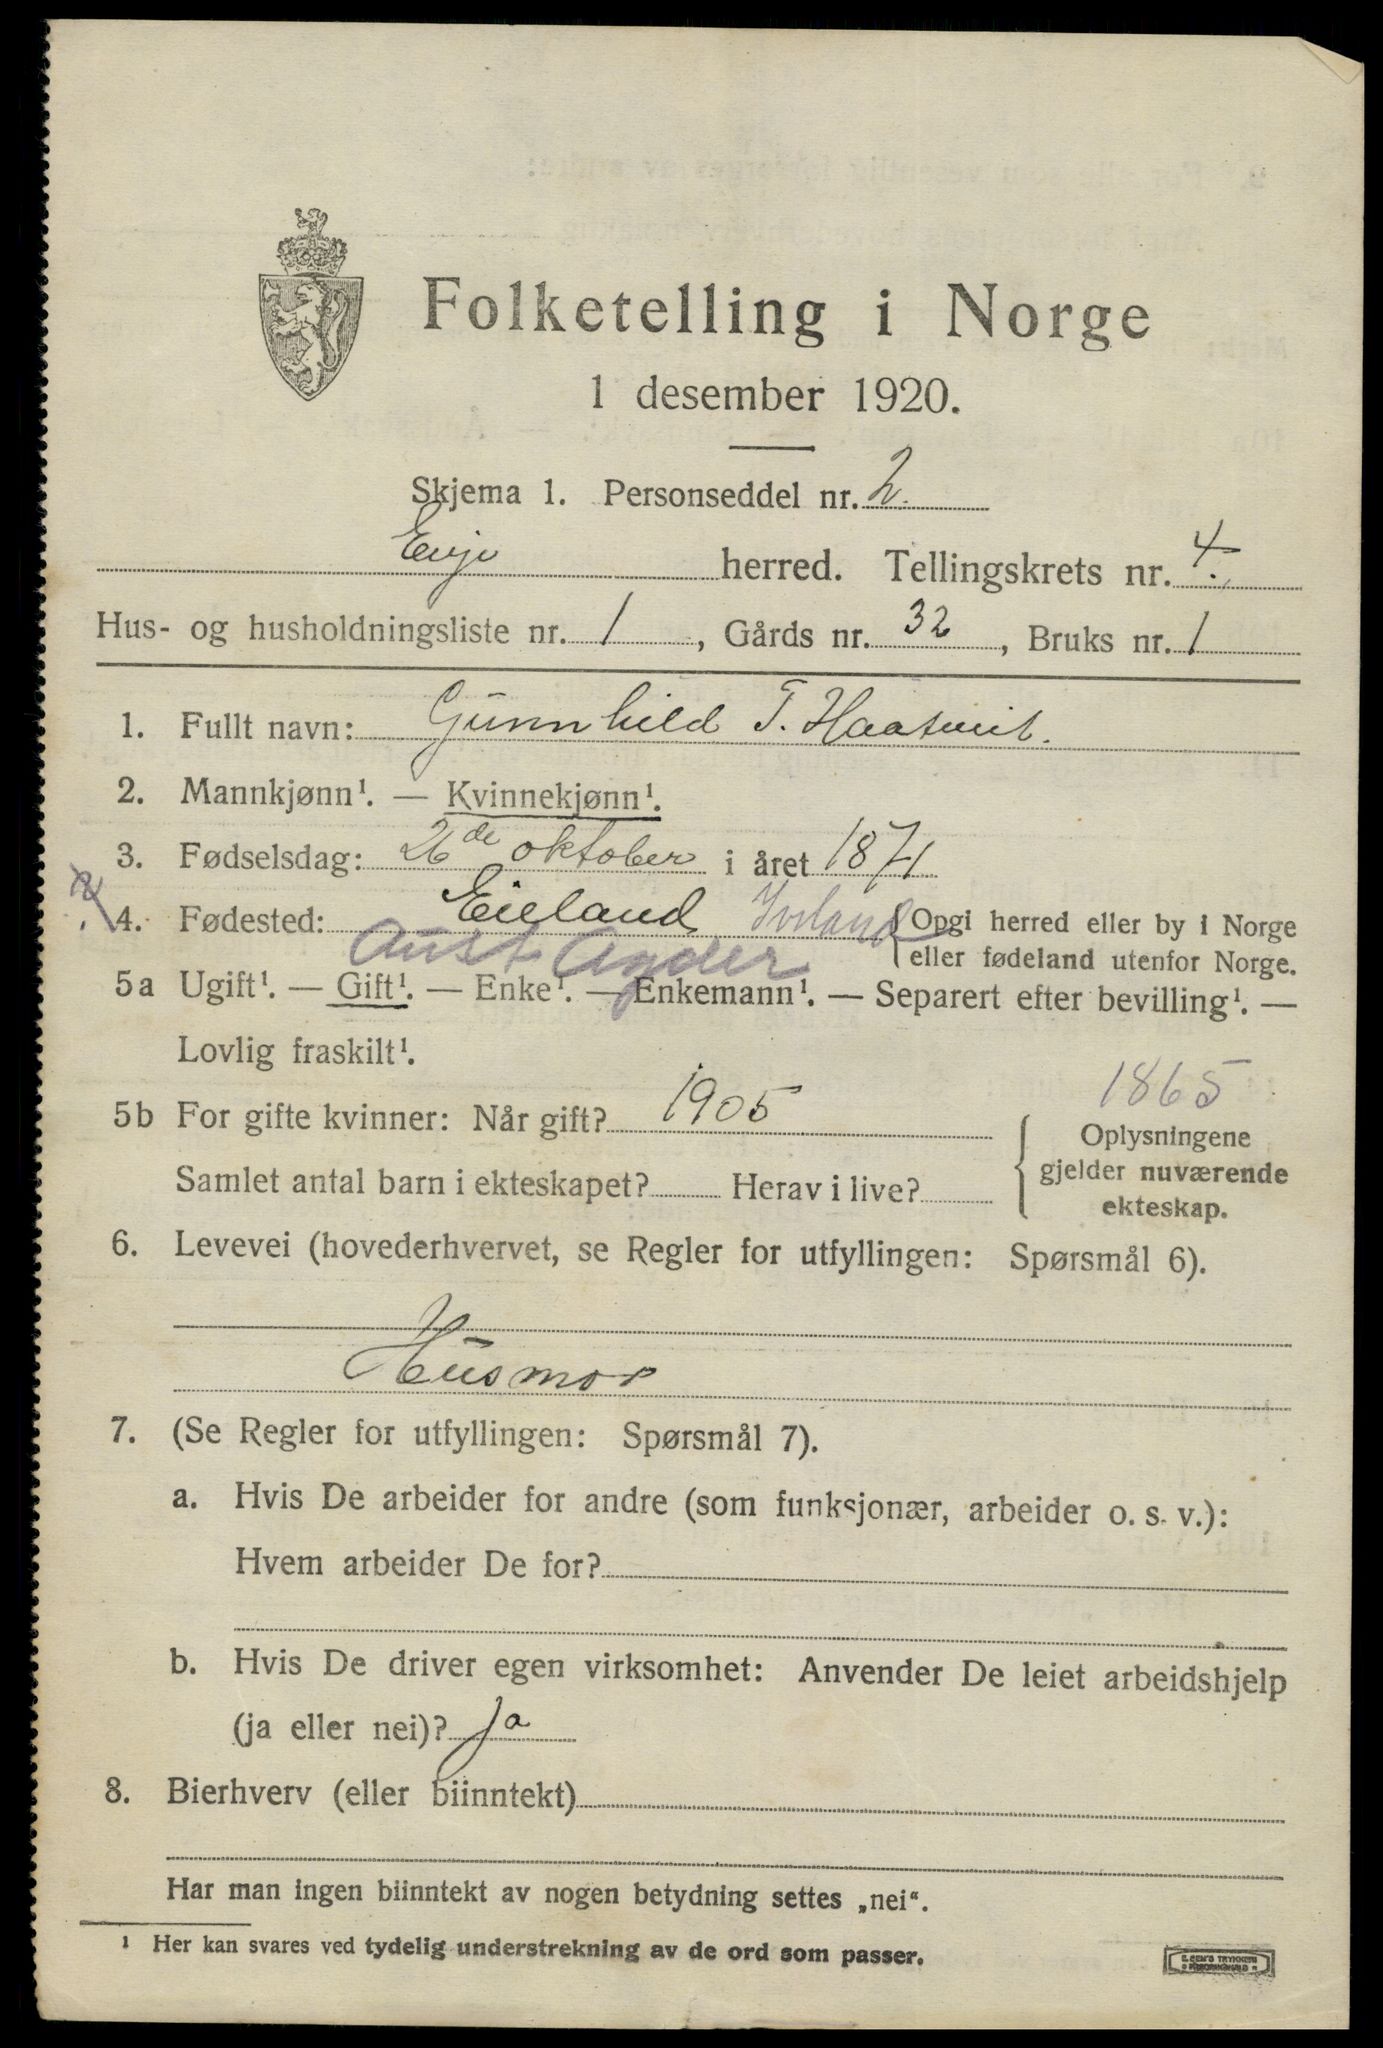 Folketelling i Norge
1 desember 1920.
Skjema 1. Personseddel nr. 2
Evje herred. Tellingskrets nr. 4.
Hus- og husholdningsliste nr. 1, Gårds nr. 32, Bruks nr. 1
1. Fullt navn: Gunnhild T. Haatveit.
2. Mannkjønn¹. — Kvinnekjønn¹.
3. Fødselsdag: 26de oktober i året 1871
4. Fødested: Eieland Iveland { Opgi herred eller by i Norge
Aust Agder eller fødeland utenfor Norge.
5a Ugift¹. — Gift¹. — Enke¹. — Enkemann¹. — Separert efter bevilling¹. —
Lovlig fraskilt¹.
1865
5b For gifte kvinner: Når gift? 1905 { Oplysningene
gjelder nuværende
Samlet antal barn i ekteskapet? Herav i live?
ekteskap.
6. Levevei (hovederhvervet, se Regler for utfyllingen: Spørsmål 6).
Husmor
7. (Se Regler for utfyllingen: Spørsmål 7).
a. Hvis De arbeider for andre (som funksjonær, arbeider o. s. v.):
Hvem arbeider De for?
b. Hvis De driver egen virksomhet: Anvender De leiet arbeidshjelp
(ja eller nei)? Ja
8. Bierhverv (eller biinntekt)
Har man ingen biinntekt av nogen betydning settes „nei“.
¹ Her kan svares ved tydelig understrekning av de ord som passer.